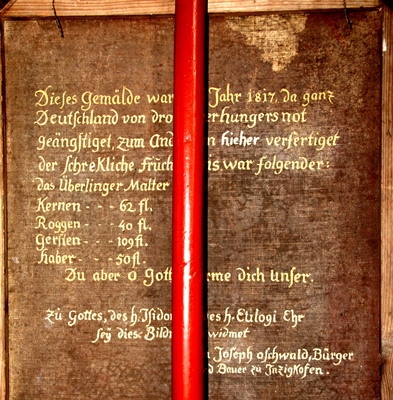 Dieses Gemälde war Jahr 1817, da ganz
Deutschland von hungers not
geängstiget, zum hieher verfertiget
der schreKliche war folgender:
das Überlinger Malter
Kernen - - - 62 fl.
Roggen - - - 40 fl.
Gersten - - - 109 fl.
haber - - - 50 fl.
Du aber o Gott dich unser.
zu Gottes, des h. Isidor des h. Eulogi Ehr
sey dies
Joseph oschwald, Bürger
Bauer zu Inzigkofen.